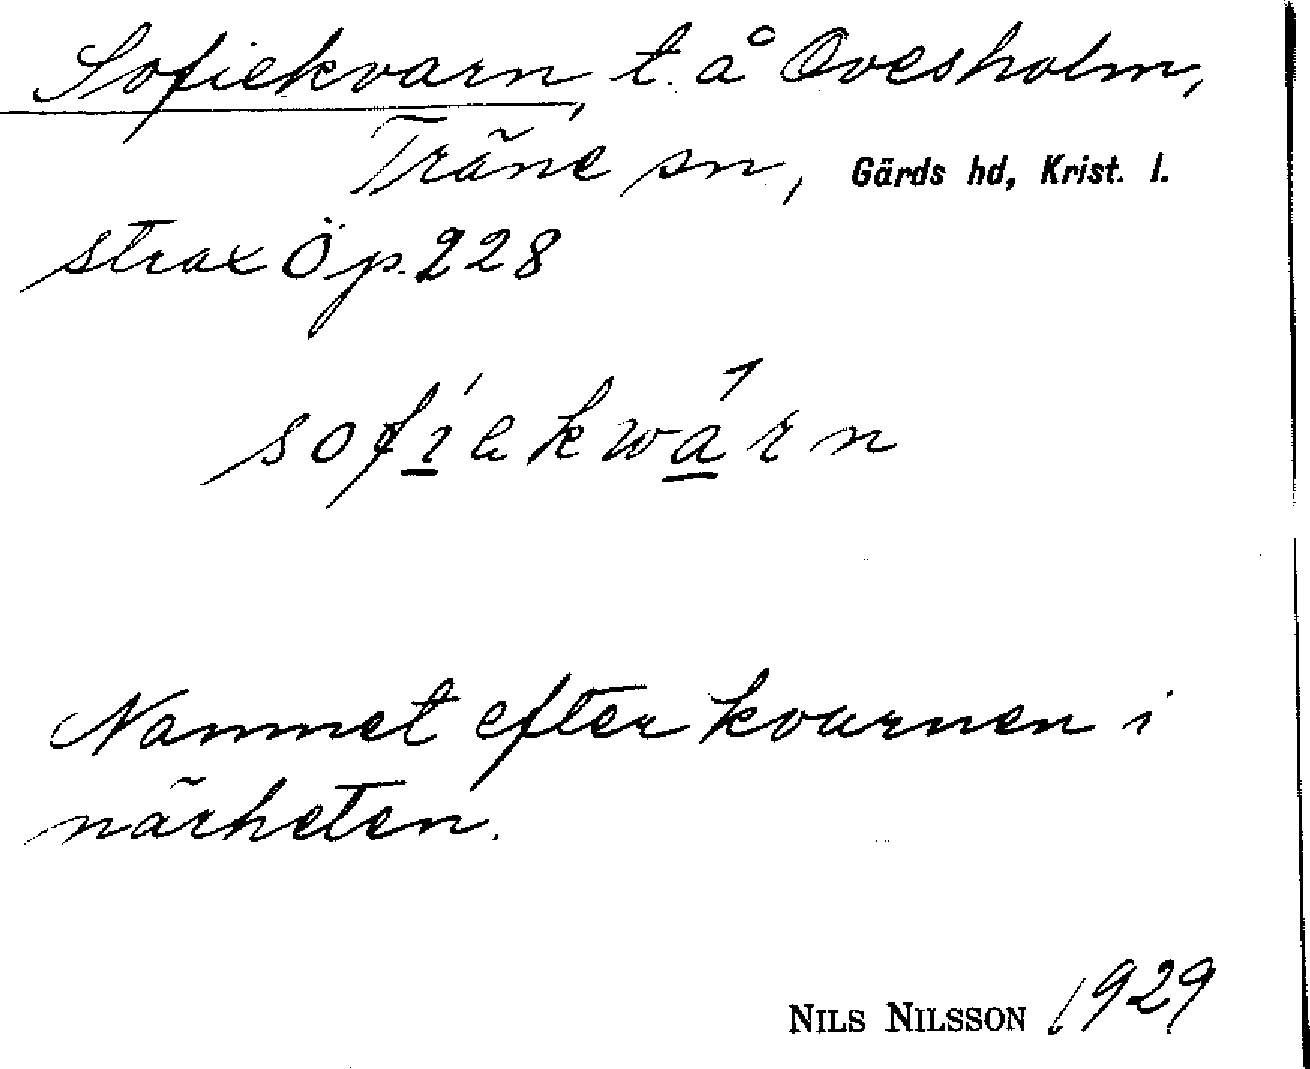 Sofiekvarn, t. å Ovesholm,
Träne sn, Gärds hd, Krist. l.
strax Ö p. 228
sofíekwárn
Namnet efter kvarnen i
närheten.
NILS NILSSON 1929